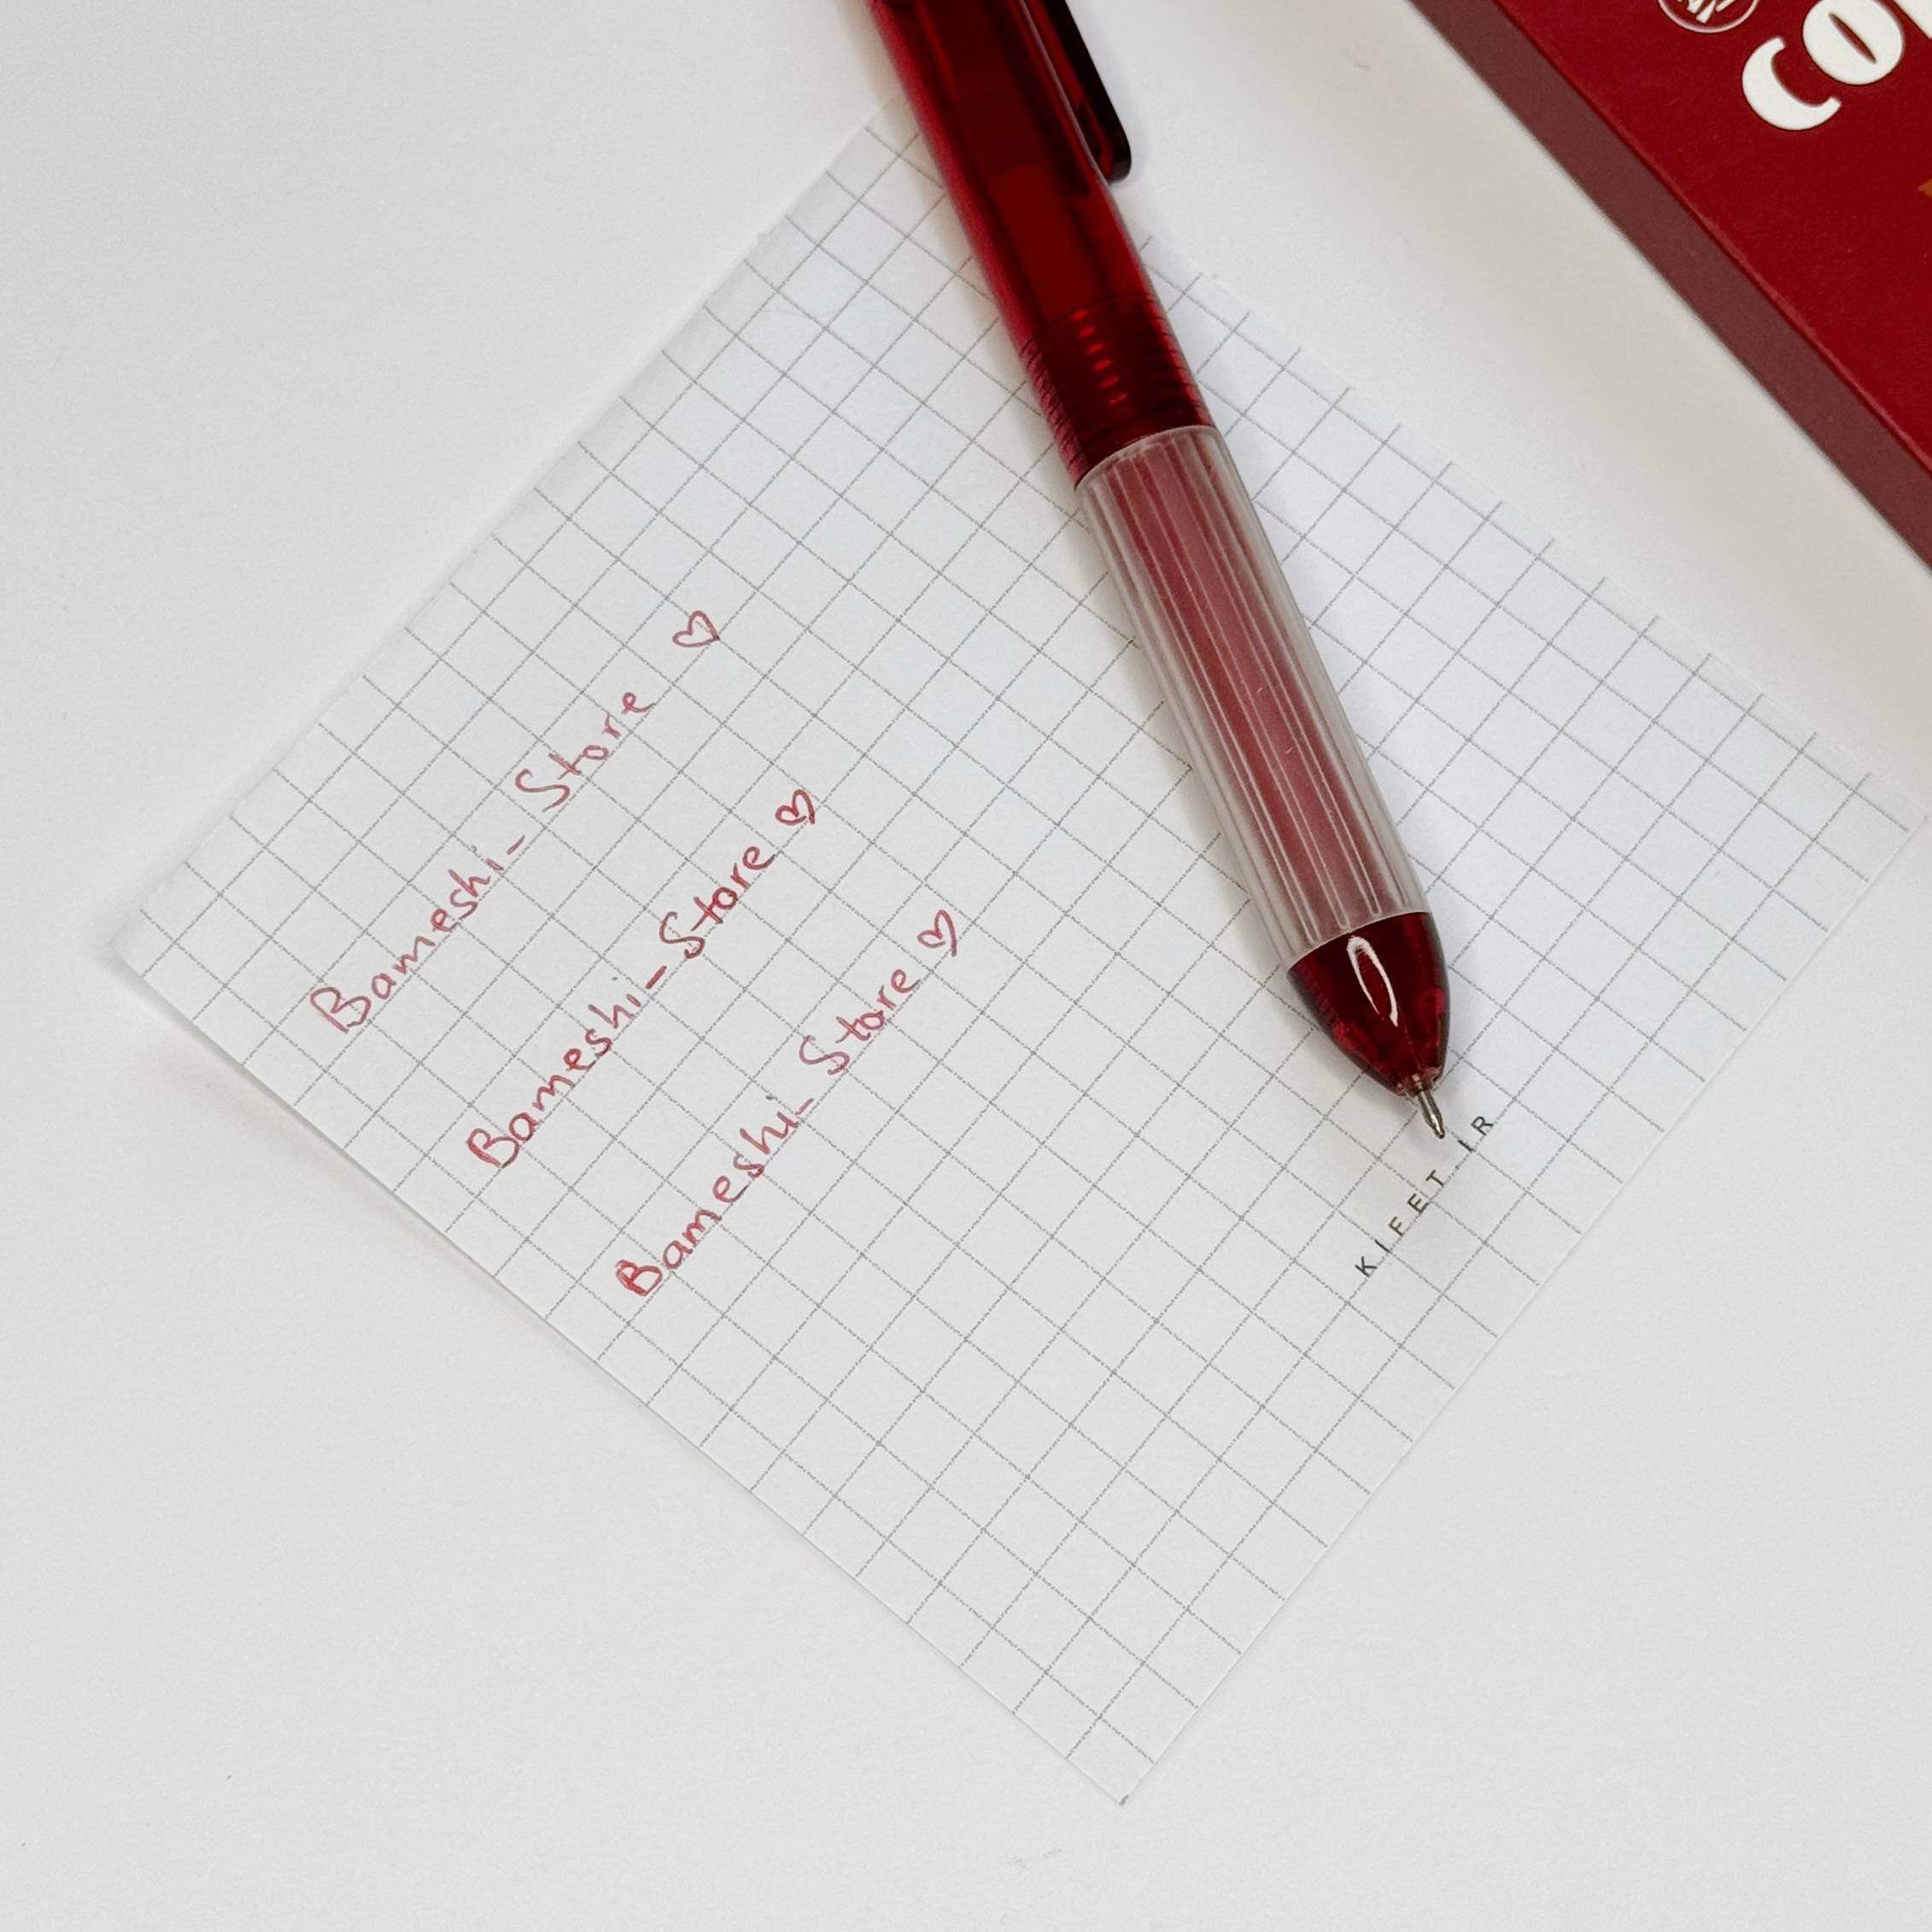 Bameshi-Store ♡
Bameshi-Store ♡
Bameshi-Store ♡
KIFET.IR